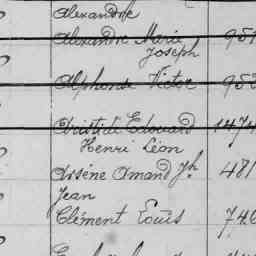 Alexandre
Alexandre Marie 95
Joseph
Alphonse Victor 952
Aristide Edouard 1474
Henri Léon
Arsène Amand Jh 481
Jean
Clément Louis 740